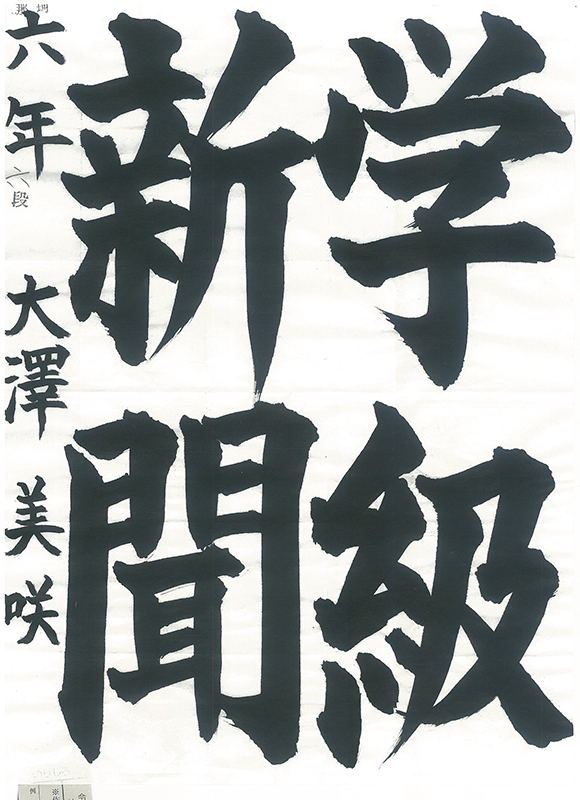 学級
新聞
六年 六段 大澤 美咲